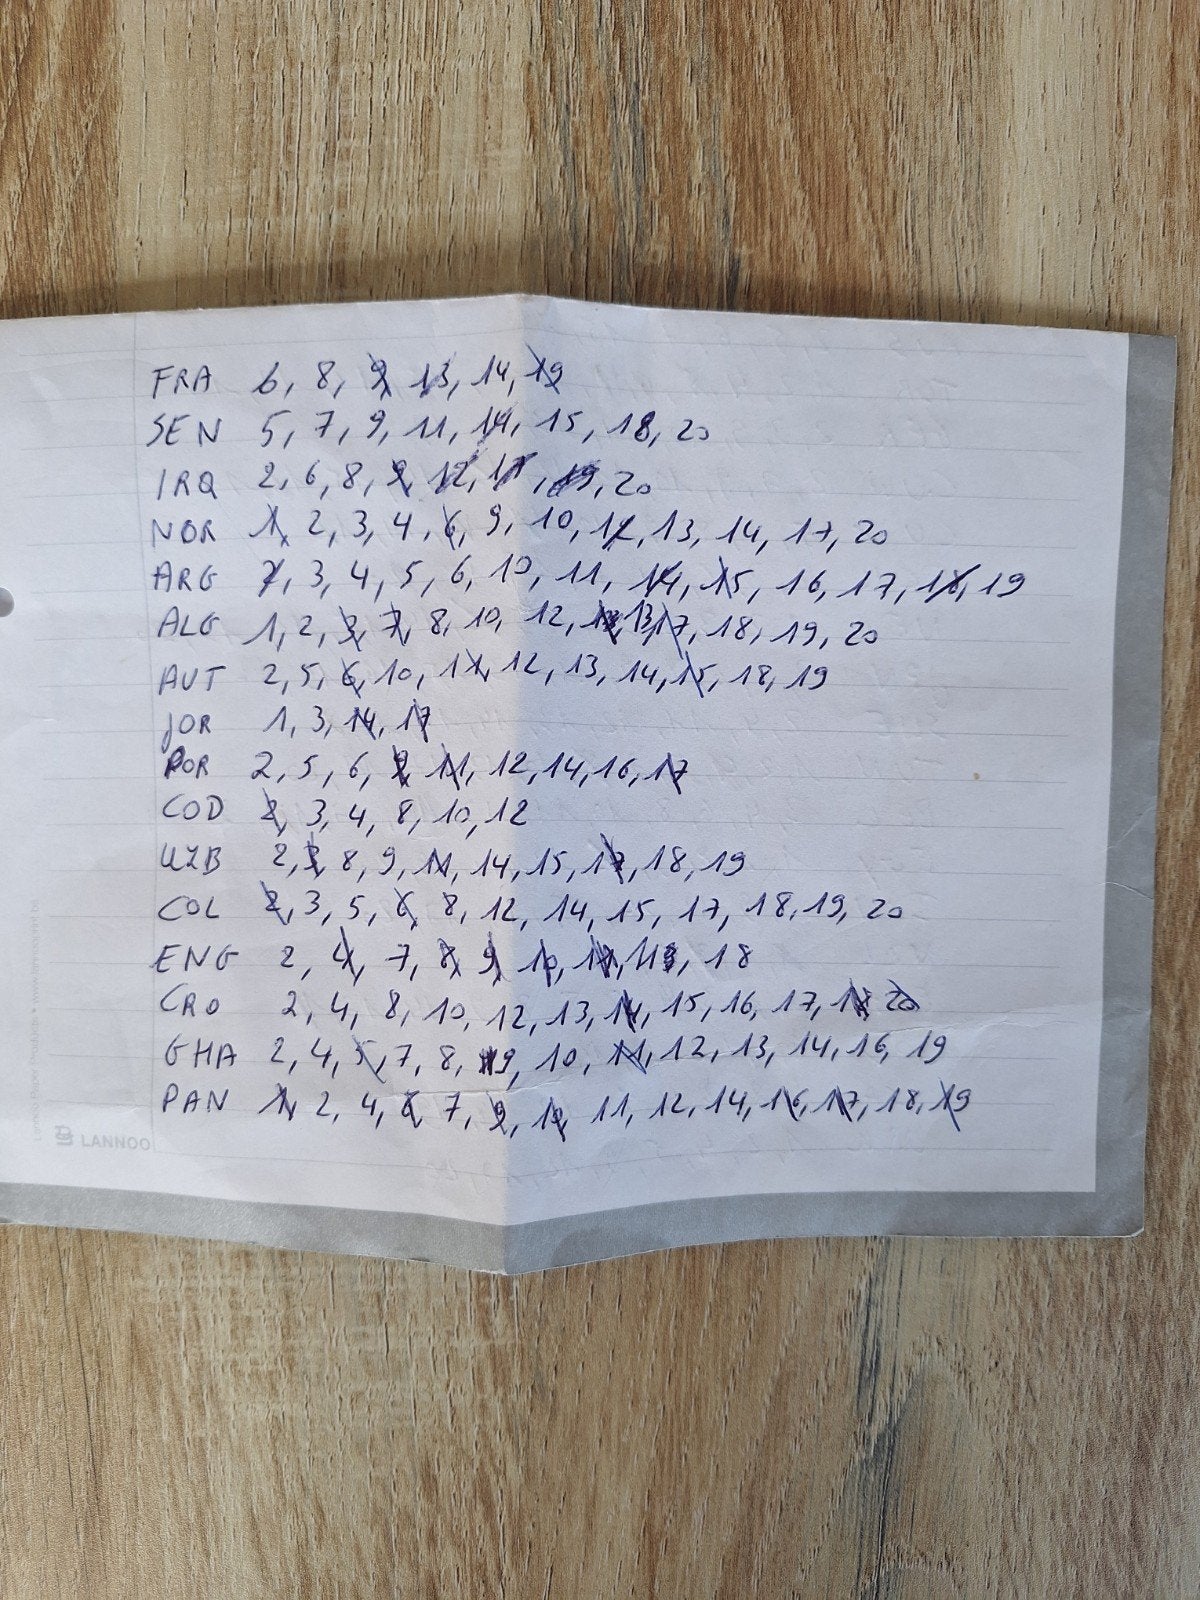 FRA 6, 8, 9, 13, 14, 19
SEN 5, 7, 9, 11, 14, 15, 18, 20
IRQ 2, 6, 8, 9, 12, 17, 19, 20
NOR 1, 2, 3, 4, 6, 9, 10, 12, 13, 14, 17, 20
ARG 2, 3, 4, 5, 6, 10, 11, 14, 15, 16, 17, 18, 19
ALG 1, 2, 3, 7, 8, 10, 12, 13, 17, 18, 19, 20
AUT 2, 5, 6, 10, 11, 12, 13, 14, 15, 18, 19
JOR 1, 3, 14, 17
POR 2, 5, 6, 9, 11, 12, 14, 16, 17
COD 2, 3, 4, 8, 10, 12
UZB 2, 3, 8, 9, 11, 14, 15, 17, 18, 19
COL 2, 3, 5, 6, 8, 12, 14, 15, 17, 18, 19, 20
ENG 2, 4, 7, 8, 9, 10, 18
CRO 2, 4, 8, 10, 12, 13, 14, 15, 16, 17, 18 20
GHA 2, 4, 5, 7, 8, 9, 10, 11, 12, 13, 14, 16, 19
PAN 1, 2, 4, 6, 7, 9, 10, 11, 12, 14, 16, 17, 18, 19
LANNOO